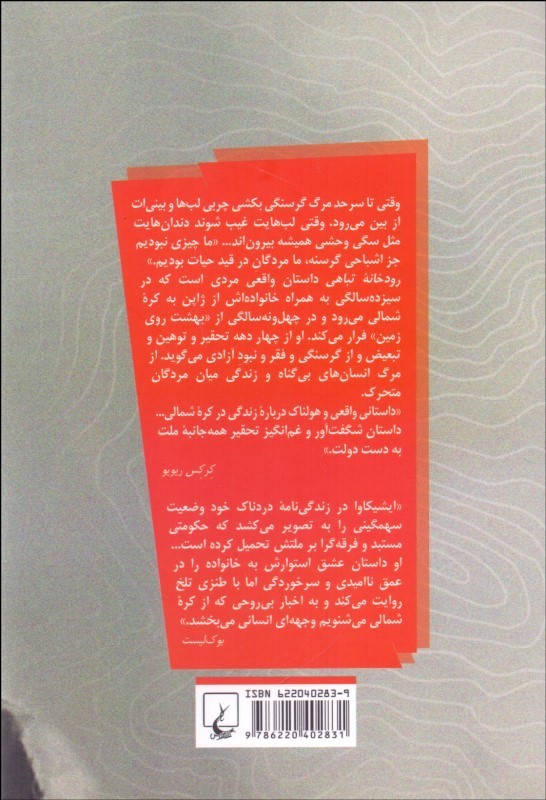 وقتی تا سرحد مرگ گرسنگی بکشی چربی لب‌ها و بینی‌ات
از بین می‌رود. وقتی لب‌هایت غیب شوند دندان‌هایت
مثل سگی وحشی همیشه بیرون‌اند... «ما چیزی نبودیم
جز اشباحی گرسنه، ما مردگان در قید حیات بودیم.»
رودخانهٔ تباهی داستان واقعی مردی است که در
سیزده‌سالگی به همراه خانواده‌اش از ژاپن به کرهٔ
شمالی می‌رود و در چهل‌ونه‌سالگی از «بهشت روی
زمین» فرار می‌کند. او از چهار دهه تحقیر و توهین و
تبعیض و از گرسنگی و فقر و نبود آزادی می‌گوید. از
مرگ انسان‌های بی‌گناه و زندگی میان مردگان
متحرک.
«داستانی واقعی و هولناک دربارهٔ زندگی در کرهٔ شمالی...
داستان شگفت‌آور و غم‌انگیز تحقیر همه‌جانبهٔ ملت
به دست دولت.»
کِرکس ریویو
«ایشیکاوا در زندگی‌نامهٔ دردناک خود وضعیت
سهمگینی را به تصویر می‌کشد که حکومتی
مستبد و فرقه‌گرا بر ملتش تحمیل کرده است...
او داستان عشق استوارش به خانواده را در
عمق ناامیدی و سرخوردگی اما با طنزی تلخ
روایت می‌کند و به اخبار بی‌روحی که از کرهٔ
شمالی می‌شنویم وجهه‌ای انسانی می‌بخشد.»
بوک‌لیست
ISBN 622040283-9
9 786220 402831